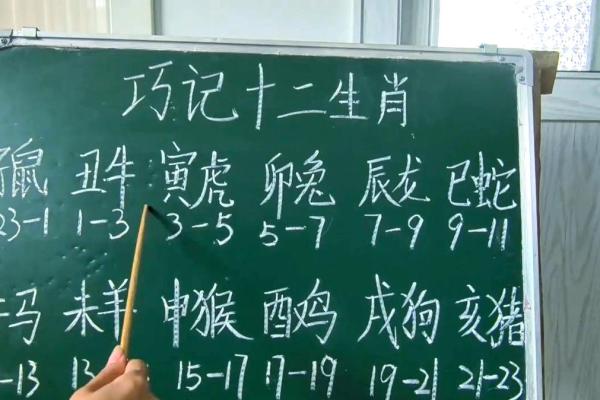 巧记十二生肖
鼠 丑牛 寅虎 卯兔 辰龙 巳蛇
23-1 1-3 3-5 5-7 7-9 9-11
马 未羊 申猴 酉鸡 戌狗 亥猪
-13 13 15-17 17-19 19-21 21-23